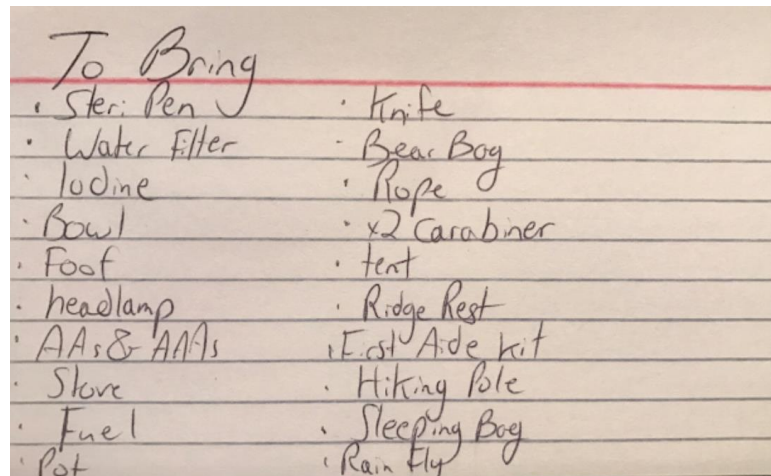 To Bring
· Steri Pen
· Water Filter
· Iodine
· Bowl
· Foof
· headlamp
· AAs & AAAs
· Stove
· Fuel
· Pot
· Knife
· Bear Bag
· Rope
· x2 Carabiner
· tent
· Ridge Rest
· First Aide kit
· Hiking Pole
· Sleeping Bag
· Rain Fly